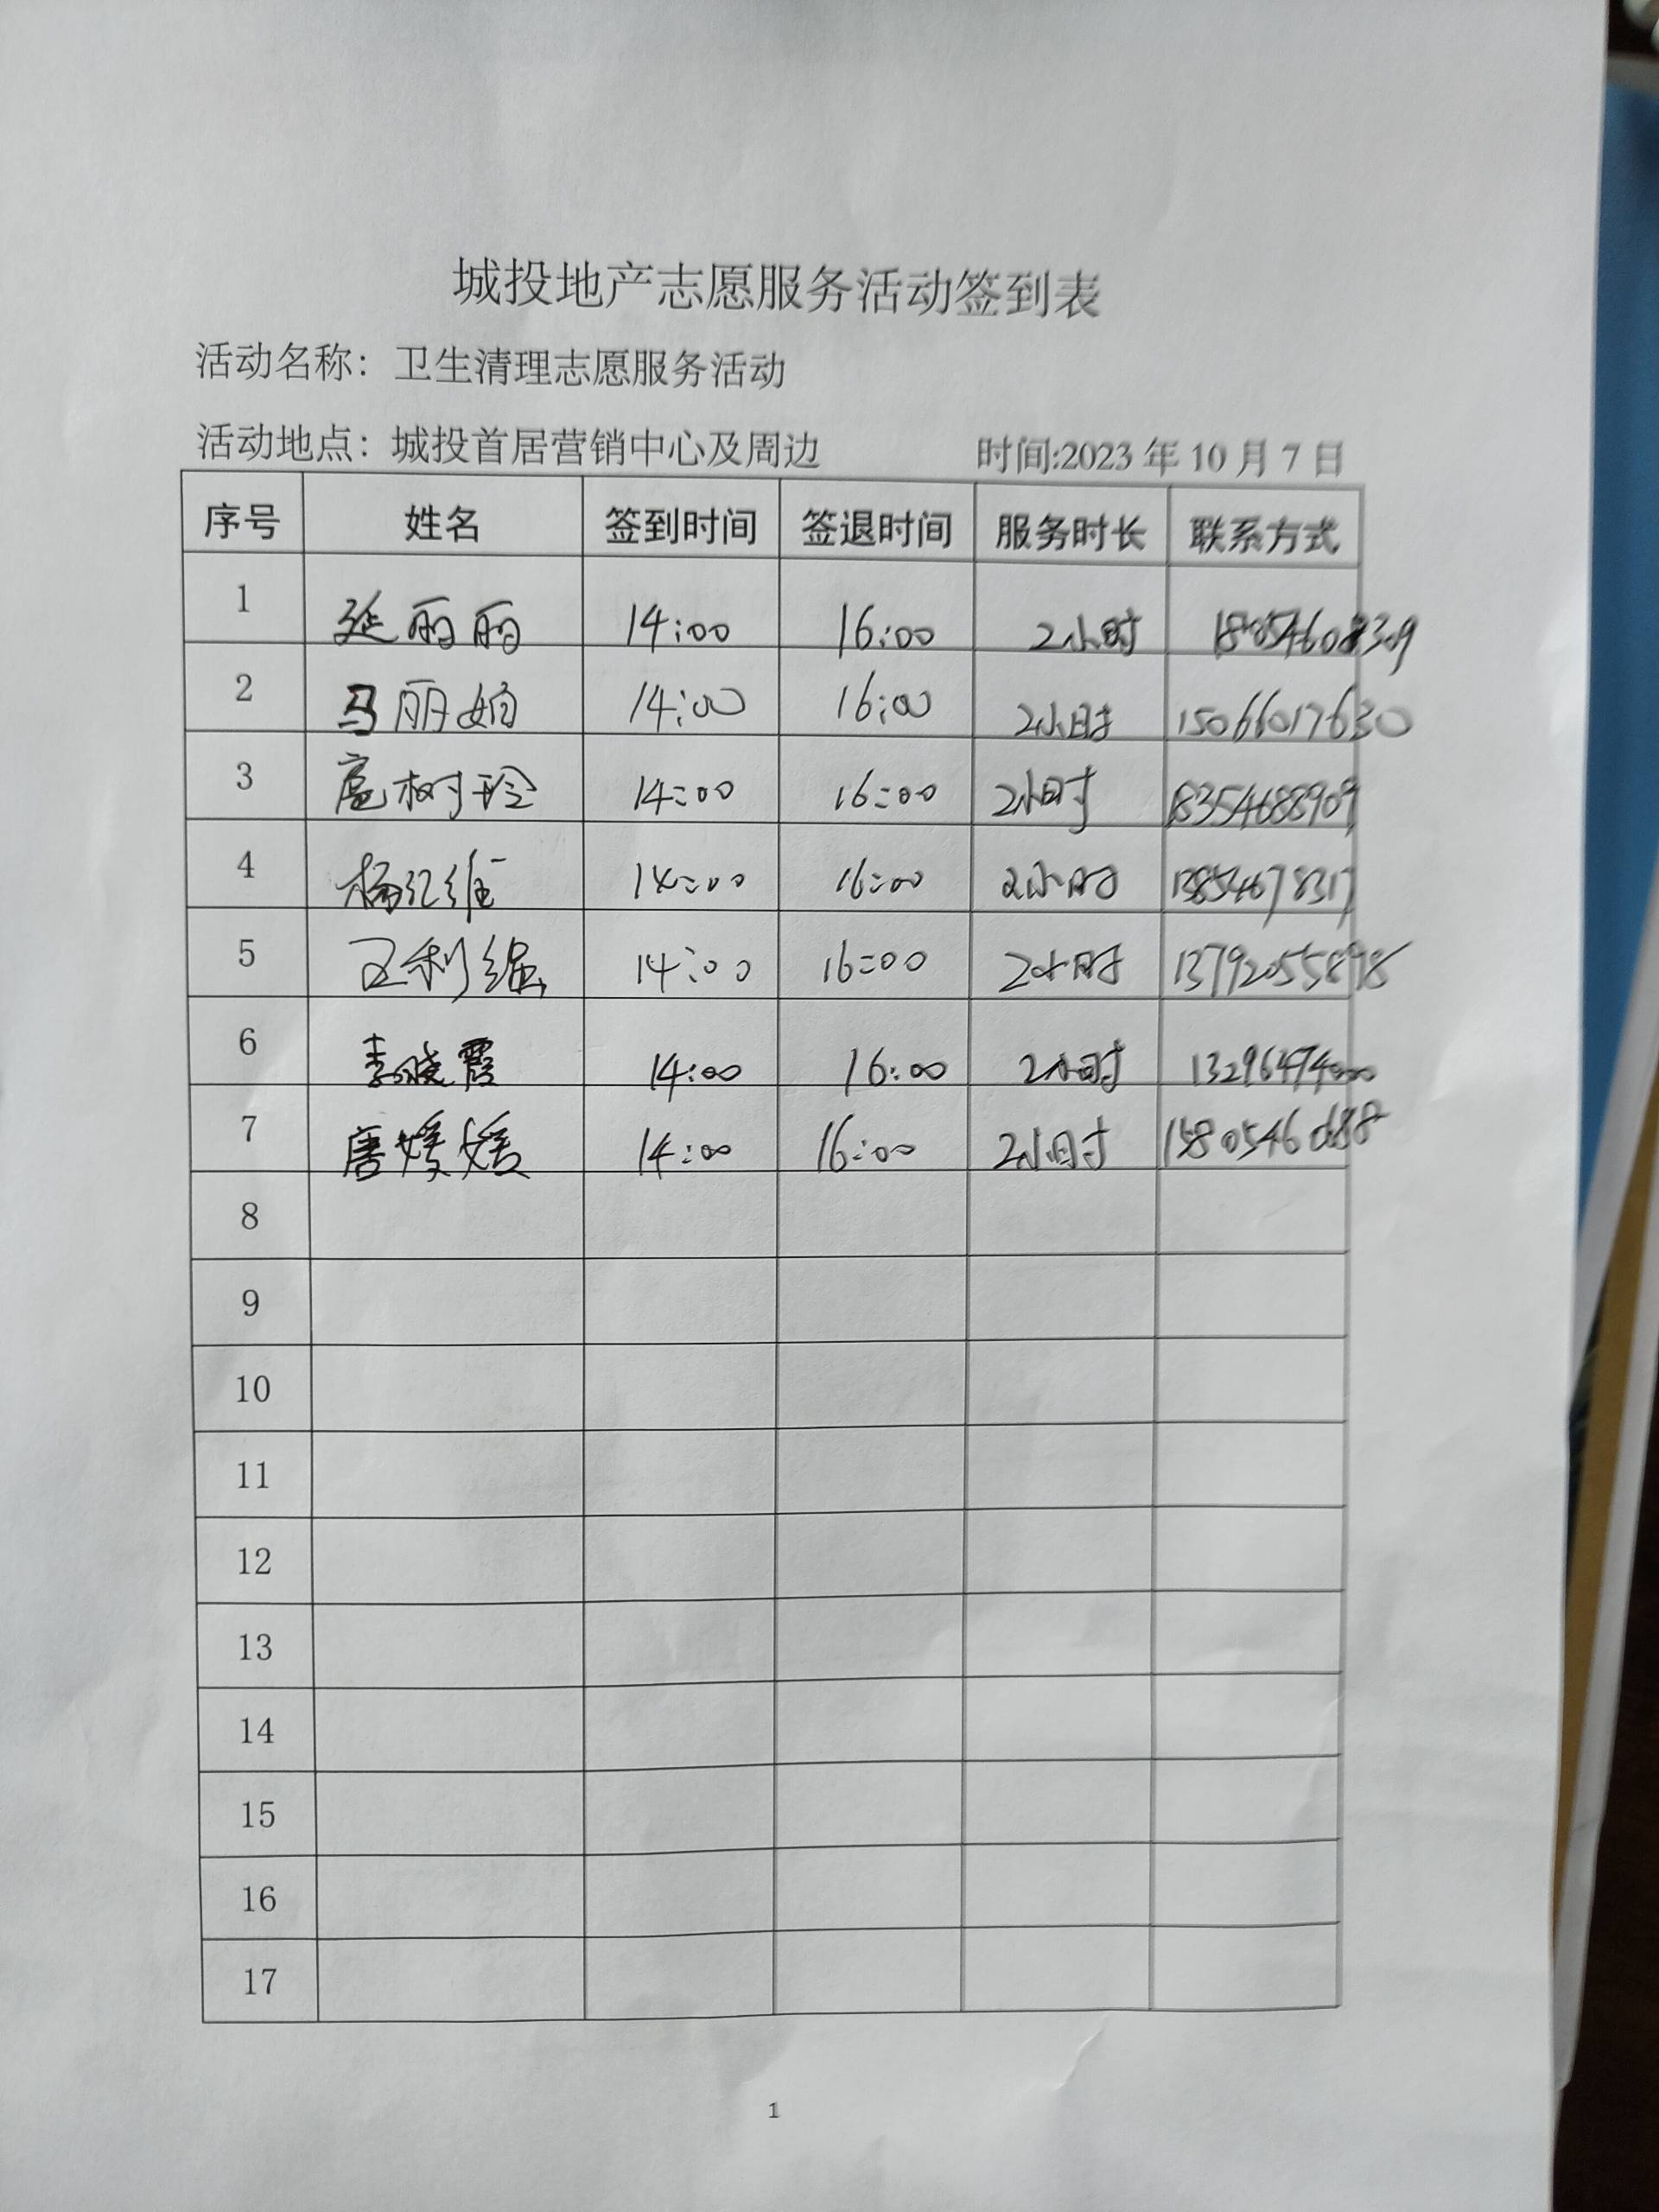 城投地产志愿服务活动签到表
活动名称：卫生清理志愿服务活动
活动地点：城投首居营销中心及周边 时间:2023 年 10 月 7 日
序号 姓名 签到时间 签退时间 服务时长 联系方式
1 延丽丽 14:00 16:00 2小时
2 马丽娟 14:00 16:00 2小时 15066017630
3 扈树玲 14:00 16:00 2小时 18354688909
4 杨红维 14:00 16:00 2小时 13854678317
5 14:00 16:00 2小时 13792055898
6 李晓霞 14:00 16:00 2小时
7 唐媛媛 14:00 16:00 2小时
8
9
10
11
12
13
14
15
16
17
1